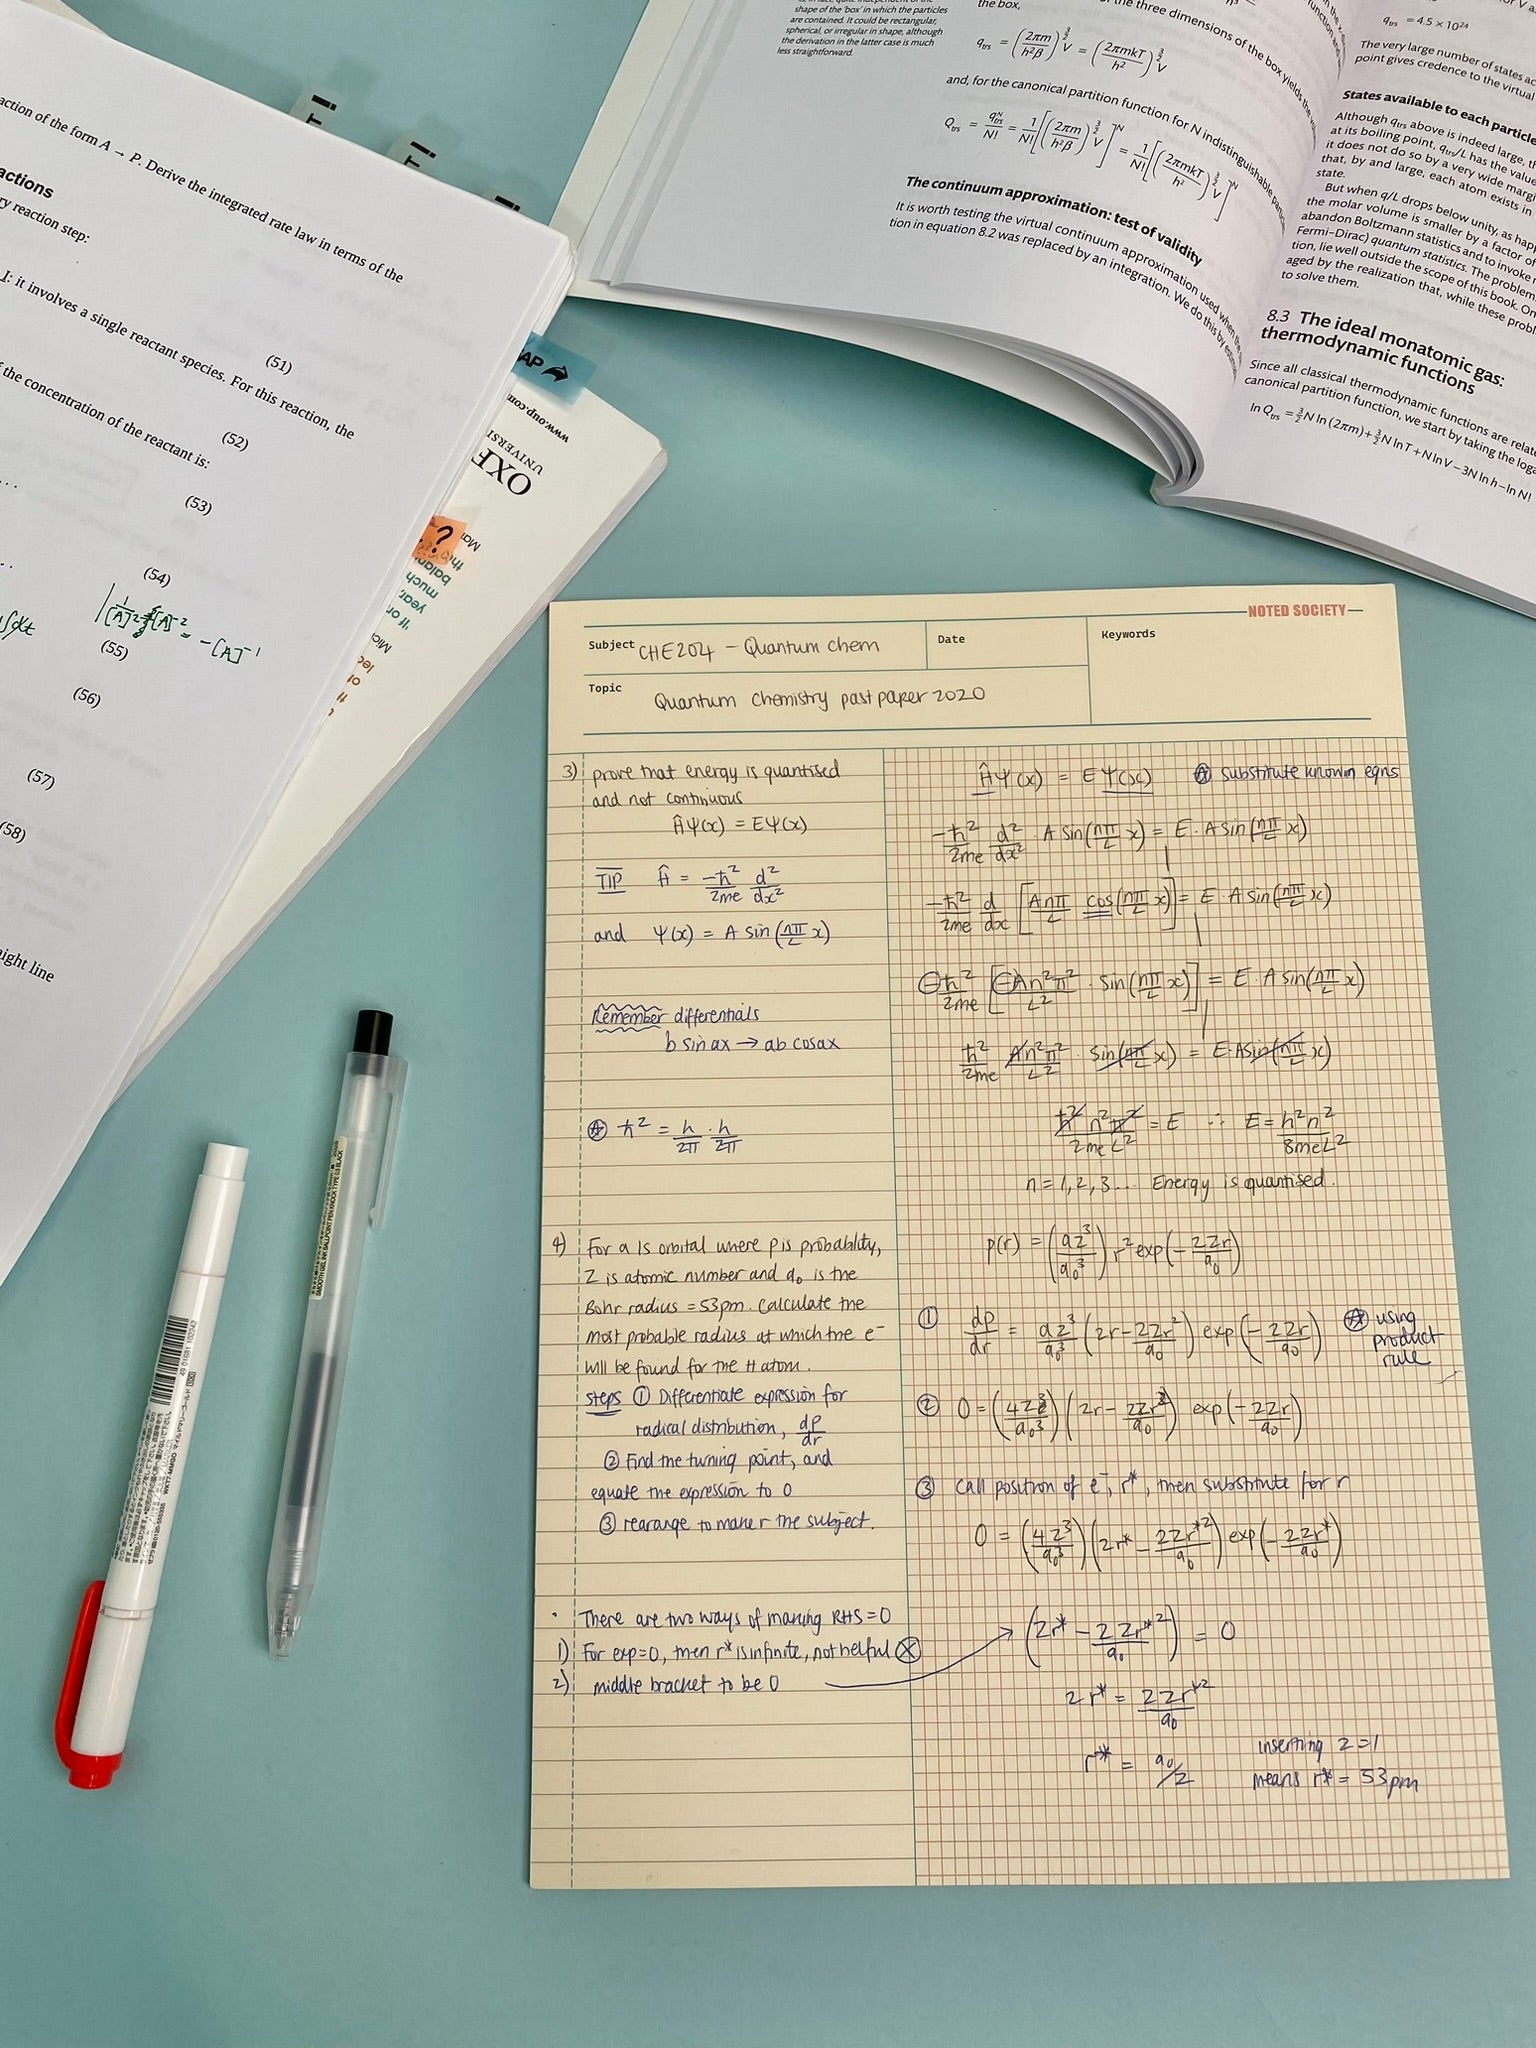 shape of the 'box' in which the particles
are contained. It could be rectangular,
spherical, or irregular in shape, although
the derivation in the latter case is much
less straightforward.
the box,
the three dimensions of the box yields the
q_trs = (2πm/h²β)^3/2 V = (2πmkT/h²)^3/2 V
and, for the canonical partition function for N indistinguishable
Q_trs = q_trs^N/N! = 1/N! [(2πm/h²β)^3/2 V]^N = 1/N! [(2πmkT/h²)^3/2 V]^N
The continuum approximation: test of validity
It is worth testing the virtual continuum approximation used when the
tion in equation 8.2 was replaced by an integration. We do this by
q_trs = 4.5 × 10²⁴
The very large number of states
point gives credence to the virtual
States available to each particle
Although q_trs above is indeed large,
at its boiling point, q_trs/L has the value
it does not do so by a very wide
that, by and large, each atom exists in
state.
But when q/L drops below unity, as
the molar volume is smaller by a factor of
abandon Boltzmann statistics and to invoke
Fermi–Dirac) quantum statistics. The
tion, lie well outside the scope of this book.
aged by the realization that, while these
to solve them.
8.3 The ideal monatomic gas:
thermodynamic functions
Since all classical thermodynamic functions are
canonical partition function, we start by taking the
ln Q_trs = 3/2 N ln (2πm) + 3/2 N ln T + N ln V – 3N ln h – ln N!
T!
T!
action of the form A → P. Derive the integrated rate law in terms of the
actions
reaction step:
it involves a single reactant species. For this reaction, the
(51)
the concentration of the reactant is:
(52)
(53)
(54)
(55)
∫dt
= -[A]⁻¹
(56)
(57)
(58)
line
AP
www.oup.com
OXF
UNIVERSI
?
balan
much
year
NOTED SOCIETY
Subject CHE204 – Quantum chem
Date
Keywords
Topic Quantum Chemistry past paper 2020
3) prove that energy is quantised
and not continuous
Ĥψ(x) = Eψ(x)
TIP Ĥ = -ħ²/2me d²/dx²
and ψ(x) = A sin(nπ/L x)
Remember differentials
b sin ax → ab cosax
ħ² = h/2π · h/2π
Ĥψ(x) = Eψ(x) substitute known eqns
-ħ²/2me d²/dx² · A sin(nπ/L x) = E · A sin(nπ/L x)
-ħ²/2me d/dx [Anπ/L cos(nπ/L x)] = E · A sin(nπ/L x)
-ħ²/2me [-An²π²/L² · sin(nπ/L x)] = E · A sin(nπ/L x)
ħ²/2me An²π²/L² · sin(nπ/L x) = E·Asin(nπ/L x)
ħ²n²π²/2meL² = E ∴ E = h²n²/8meL²
n = 1, 2, 3... Energy is quantised.
4) For a 1s orbital where p is probability,
Z is atomic number and a₀ is the
Bohr radius = 53pm. Calculate the
most probable radius at which the e⁻
will be found for the H atom.
steps ① Differentiate expression for
radical distribution, dp/dr
② Find the turning point, and
equate the expression to 0
③ rearange to make r the subject.
· There are two ways of making RHS = 0
1) For exp=0, then r* is infinite, not helpful
2) middle bracket to be 0
p(r) = (az³/a₀³) r² exp(-2Zr/a₀)
① dp/dr = az³/a₀³ (2r - 2Zr²/a₀) exp(-2Zr/a₀) using
product
rule
② 0 = (4Z³/a₀³)(2r - 2Zr²/a₀) exp(-2Zr/a₀)
③ call position of e⁻, r*, then substitute for r
0 = (4Z³/a₀³)(2r* - 2Zr*²/a₀) exp(-2Zr*/a₀)
(2r* - 2Zr*²/a₀) = 0
2r* = 2Zr*²/a₀
r* = a₀/Z
inserting Z = 1
means r* = 53pm